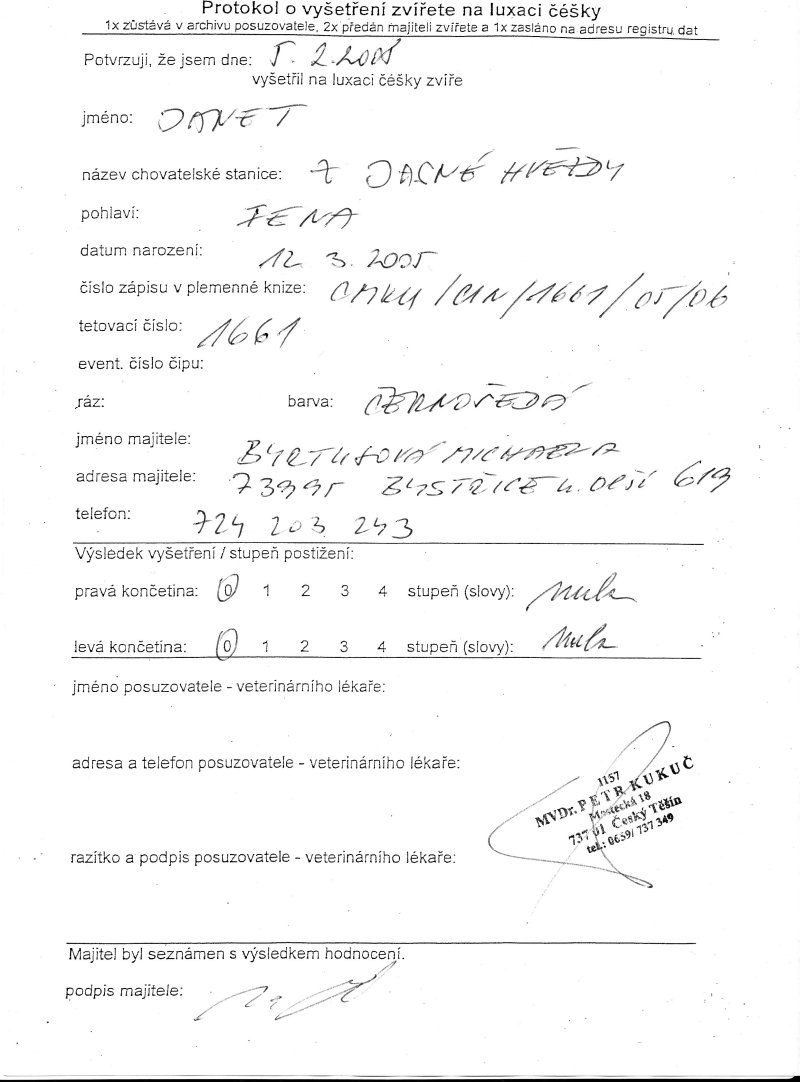 Protokol o vyšetření zvířete na luxaci čéšky
1x zůstává v archivu posuzovatele, 2x předán majiteli zvířete a 1x zasláno na adresu registru dat
Potvrzuji, že jsem dne: 5. 2. 2008
vyšetřil na luxaci čéšky zvíře
jméno: JANET
název chovatelské stanice: Z JASNÉ HVĚZDY
pohlaví: FENA
datum narození: 12. 3. 2005
číslo zápisu v plemenné knize: CMKU /CIN/1661/05/06
tetovací číslo: 1661
event. číslo čipu:
ráz: barva: ČERNOŠEDÁ
jméno majitele: BYRTUSOVÁ MICHAELA
adresa majitele: 73995 BYSTŘICE n. OLŠÍ 619
telefon: 724 203 243
Výsledek vyšetření / stupeň postižení:
pravá končetina: 0 1 2 3 4 stupeň (slovy): nula
levá končetina: 0 1 2 3 4 stupeň (slovy): nula
jméno posuzovatele - veterinárního lékaře:
adresa a telefon posuzovatele - veterinárního lékaře:
1157
MVDr. PETR KUKUČ
Mostecká 18
737 01 Český Těšín
tel.: 0659/ 737 349
razítko a podpis posuzovatele - veterinárního lékaře:
Majitel byl seznámen s výsledkem hodnocení.
podpis majitele: